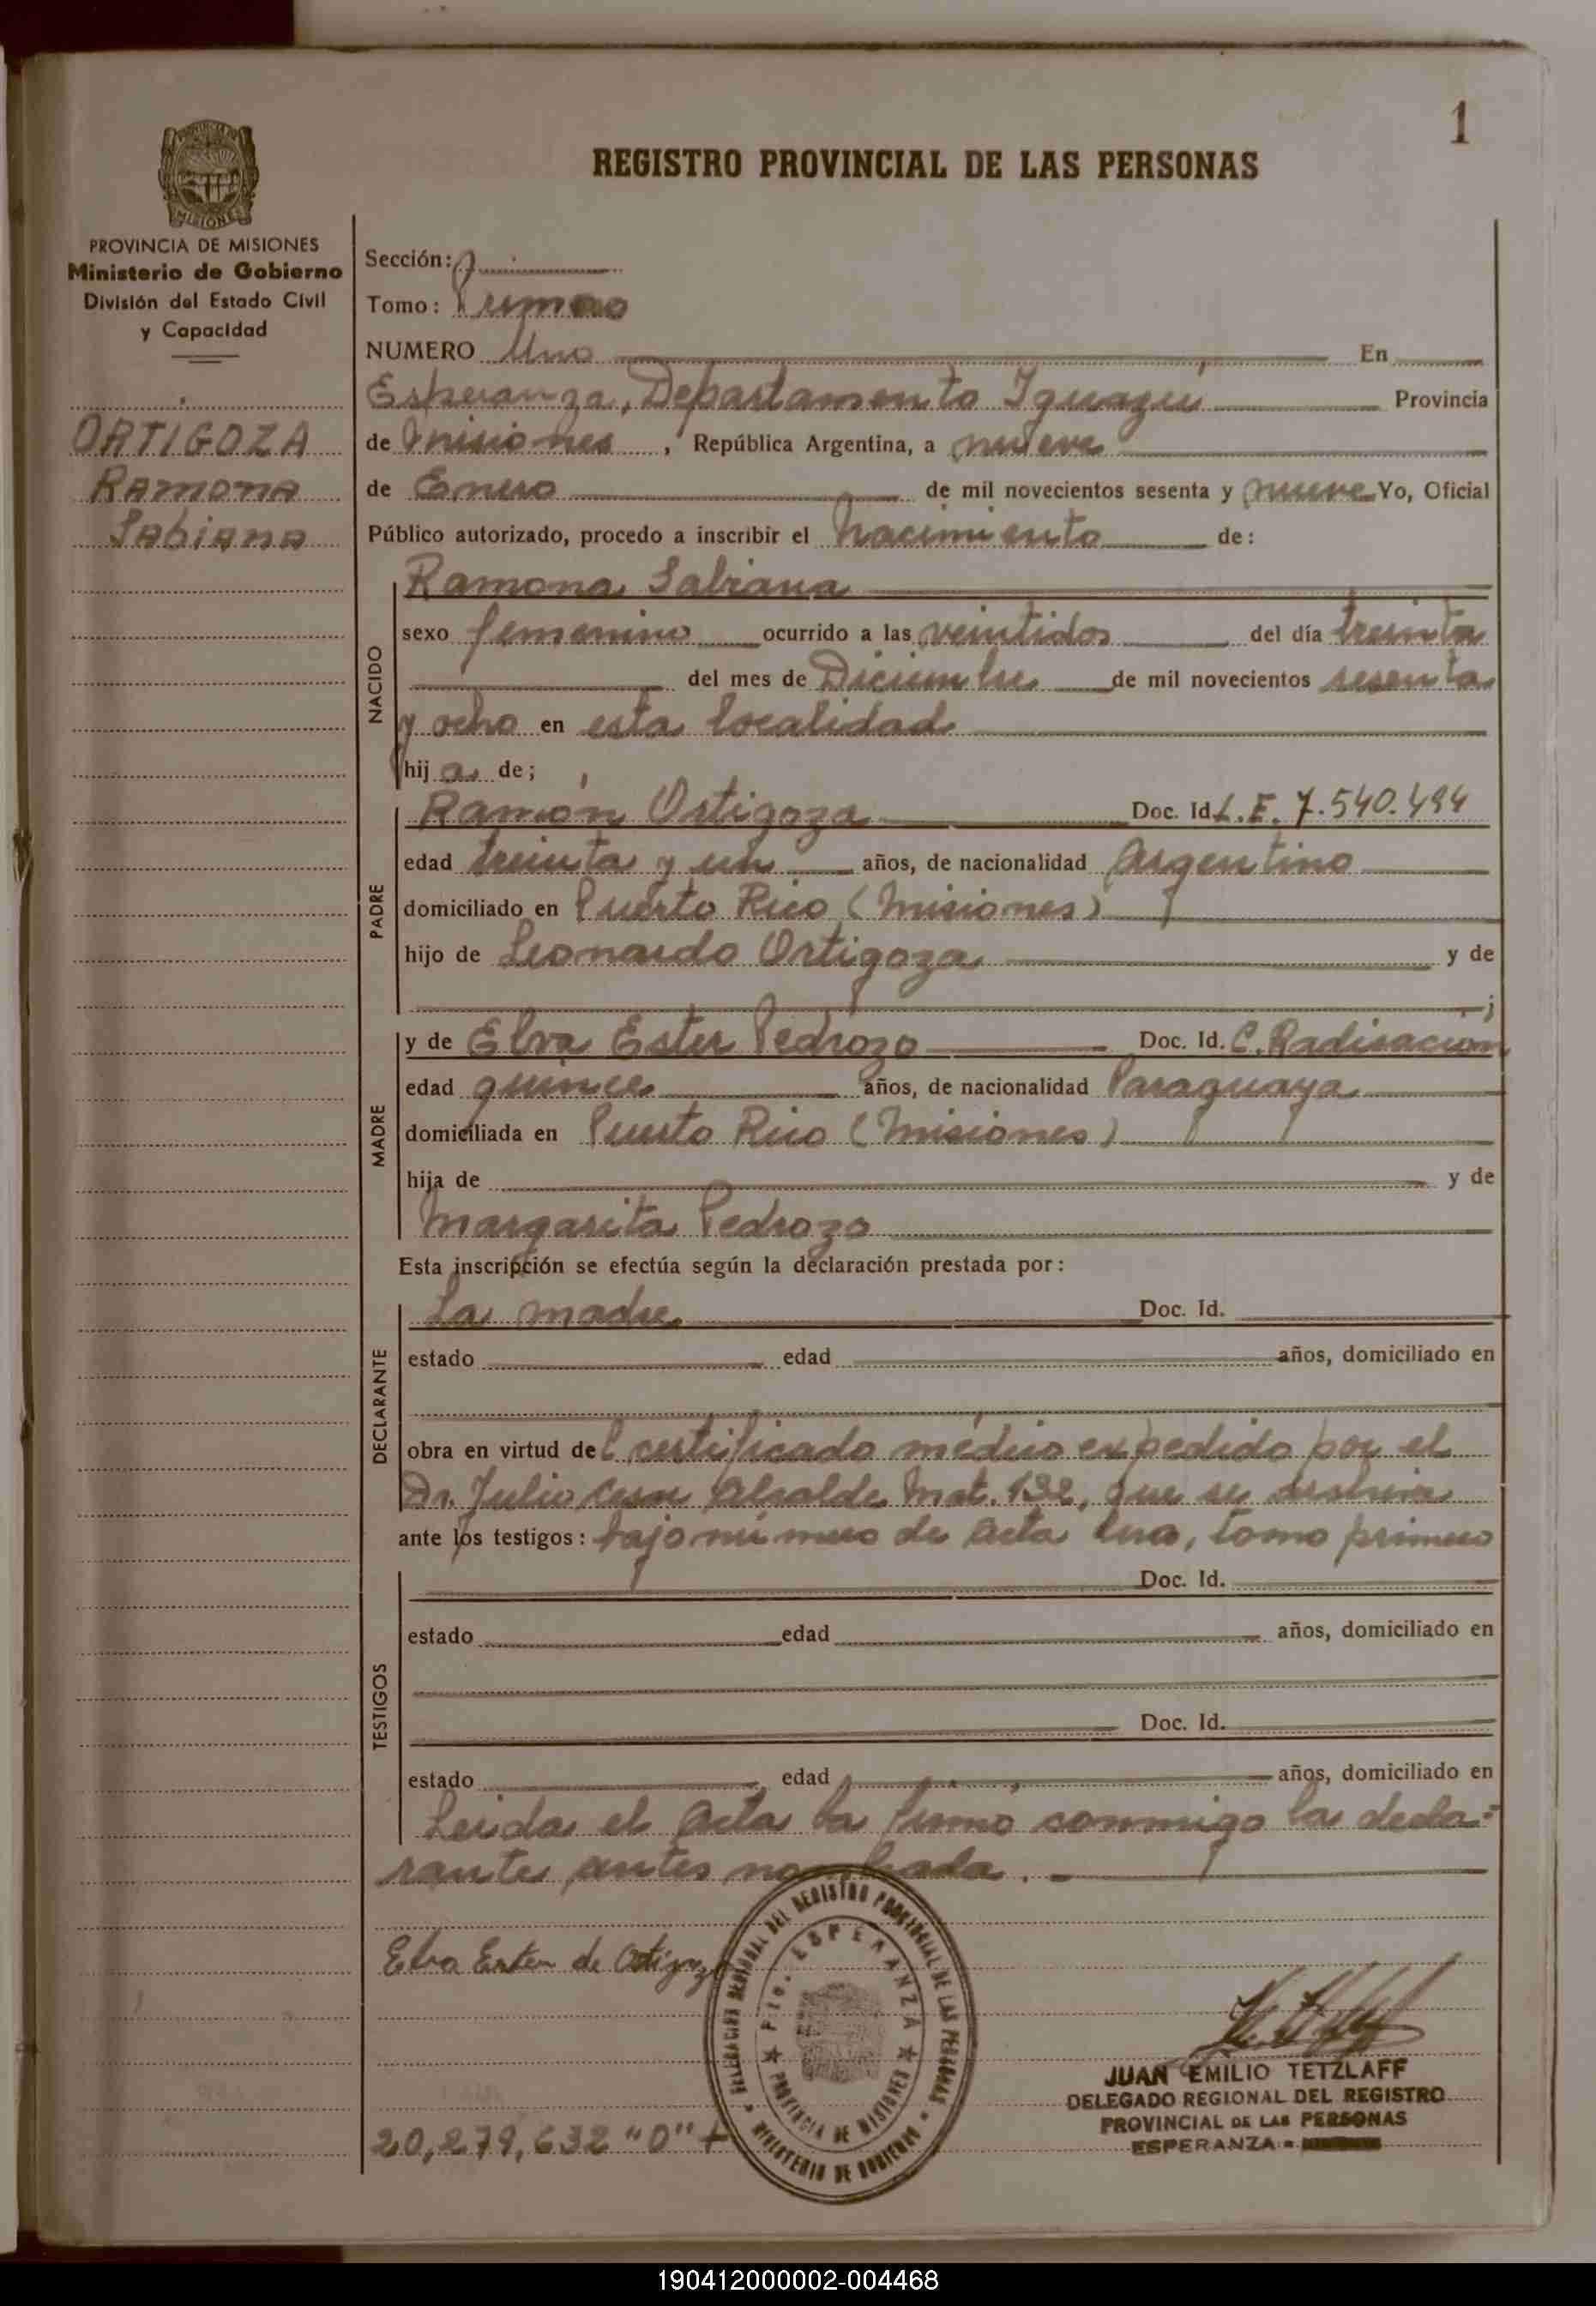 1
REGISTRO PROVINCIAL DE LAS PERSONAS
PROVINCIA DE MISIONES
Ministerio de Gobierno
División del Estado Civil
y Capacidad
ORTIGOZA
Ramona
Sabiana
Sección:
Tomo: Primero
NUMERO Uno En
Esperanza, Departamento Iguazú Provincia
de Misiones, República Argentina, a nueve
de Enero de mil novecientos sesenta y nueve Yo, Oficial
Público autorizado, procedo a inscribir el nacimiento de:
NACIDO
Ramona Sabiana
sexo femenino ocurrido a las veintidos del día treinta
del mes de Diciembre de mil novecientos sesenta
y ocho en esta localidad
hij a de;
PADRE
Ramón Ortigoza Doc. Id. L.E. 7.540.494
edad treinta y un años, de nacionalidad Argentino
domiciliado en Puerto Rico (Misiones)
hijo de Leonardo Ortigoza y de
;
MADRE
y de Elva Ester Pedrozo Doc. Id. C. Radicación
edad quince años, de nacionalidad Paraguaya
domiciliada en Puerto Rico (Misiones)
hija de y de
Margarita Pedrozo
Esta inscripción se efectúa según la declaración prestada por:
DECLARANTE
La madre Doc. Id.
estado edad años, domiciliado en
obra en virtud del certificado médico expedido por el
Dr. Julio Cesar Alcalde Mat. 132, que se archiva
ante los testigos: bajo número de acta uno, tomo primero
TESTIGOS
Doc. Id.
estado edad años, domiciliado en
Doc. Id.
estado edad años, domiciliado en
Leida el Acta la firmó conmigo la decla-
rante antes nombrada.
Elva Ester de Ortigoza
DELEGACION REGIONAL DEL REGISTRO PROVINCIAL DE LAS PERSONAS
Pto. ESPERANZA
PROVINCIA DE MISIONES
MINISTERIO DE GOBIERNO
JUAN EMILIO TETZLAFF
DELEGADO REGIONAL DEL REGISTRO
PROVINCIAL DE LAS PERSONAS
ESPERANZA -
20,279,632 "D" F
190412000002-004468